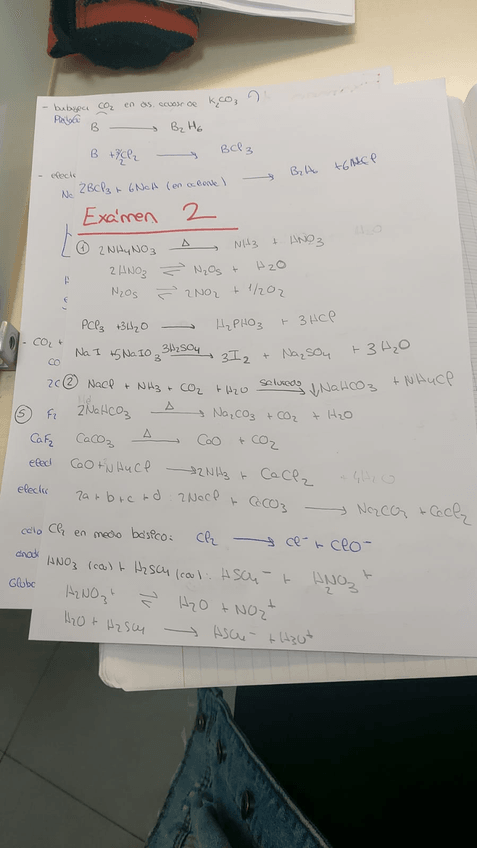 - burbujea CO2 en dis. acuosa de K2CO3
B → B2H6
B + 3/2Cl2 → BCl3
- efecto
Na 2BCl3 + 6NaH (en ) → B2H6 + 6NaCl
Exámen 2
① 2NH4NO3 Δ→ NH3 + HNO3
2HNO3 ⇌ N2O5 + H2O
N2O5 ⇌ 2NO2 + 1/2O2
PCl3 + 3H2O → H2PHO3 + 3HCl
- CO2 +
NaI + 5NaIO3 3H2SO4→ 3I2 + Na2SO4 + 3H2O
CO
2C ② NaCl + NH3 + CO2 + H2O → ↓NaHCO3 + NH4Cl
⑤ F2 2NaHCO3 Δ→ Na2CO3 + CO2 + H2O
CaF2 CaCO3 Δ→ CaO + CO2
efect CaO + NH4Cl → 2NH3 + CaCl2
efecto 2a + b + c + d: 2NaCl + CaCO3 → Na2CO3 + CaCl2
Cl2 en medio básico: Cl2 → Cl⁻ + ClO⁻
HNO3 (cc) + H2SO4 (cc): HSO4⁻ + H2NO3⁺
Globa H2NO3⁺ ⇌ H2O + NO2⁺
H2O + H2SO4 → HSO4⁻ + H3O⁺